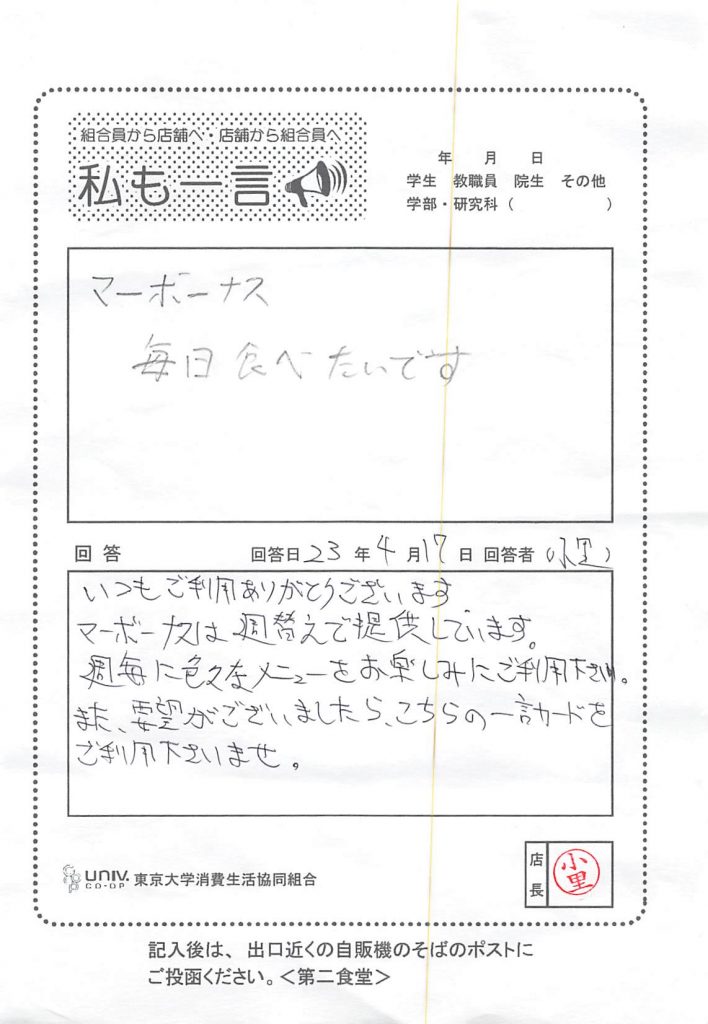 組合員から店舗へ・店舗から組合員へ
私も一言
年 月 日
学生 教職員 院生 その他
学部・研究科( )
マーボーナス
毎日食べたいです
回答 回答日 23 年 4 月 17 日 回答者(小里)
いつもご利用ありがとうございます
マーボーナスは週替えで提供しています。
週毎に色々なメニューをお楽しみにご利用下さい。
また、要望がございましたら、こちらの一言カードを
ご利用下さいませ。
店長
小里
UNIV. CO-OP 東京大学消費生活協同組合
記入後は、出口近くの自販機のそばのポストに
ご投函ください。<第二食堂>